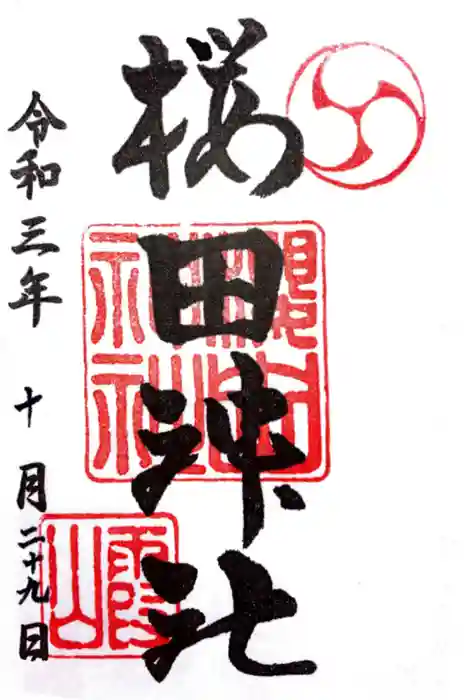 桜田神社
令和三年 十月二十九日
櫻田神社
霞山